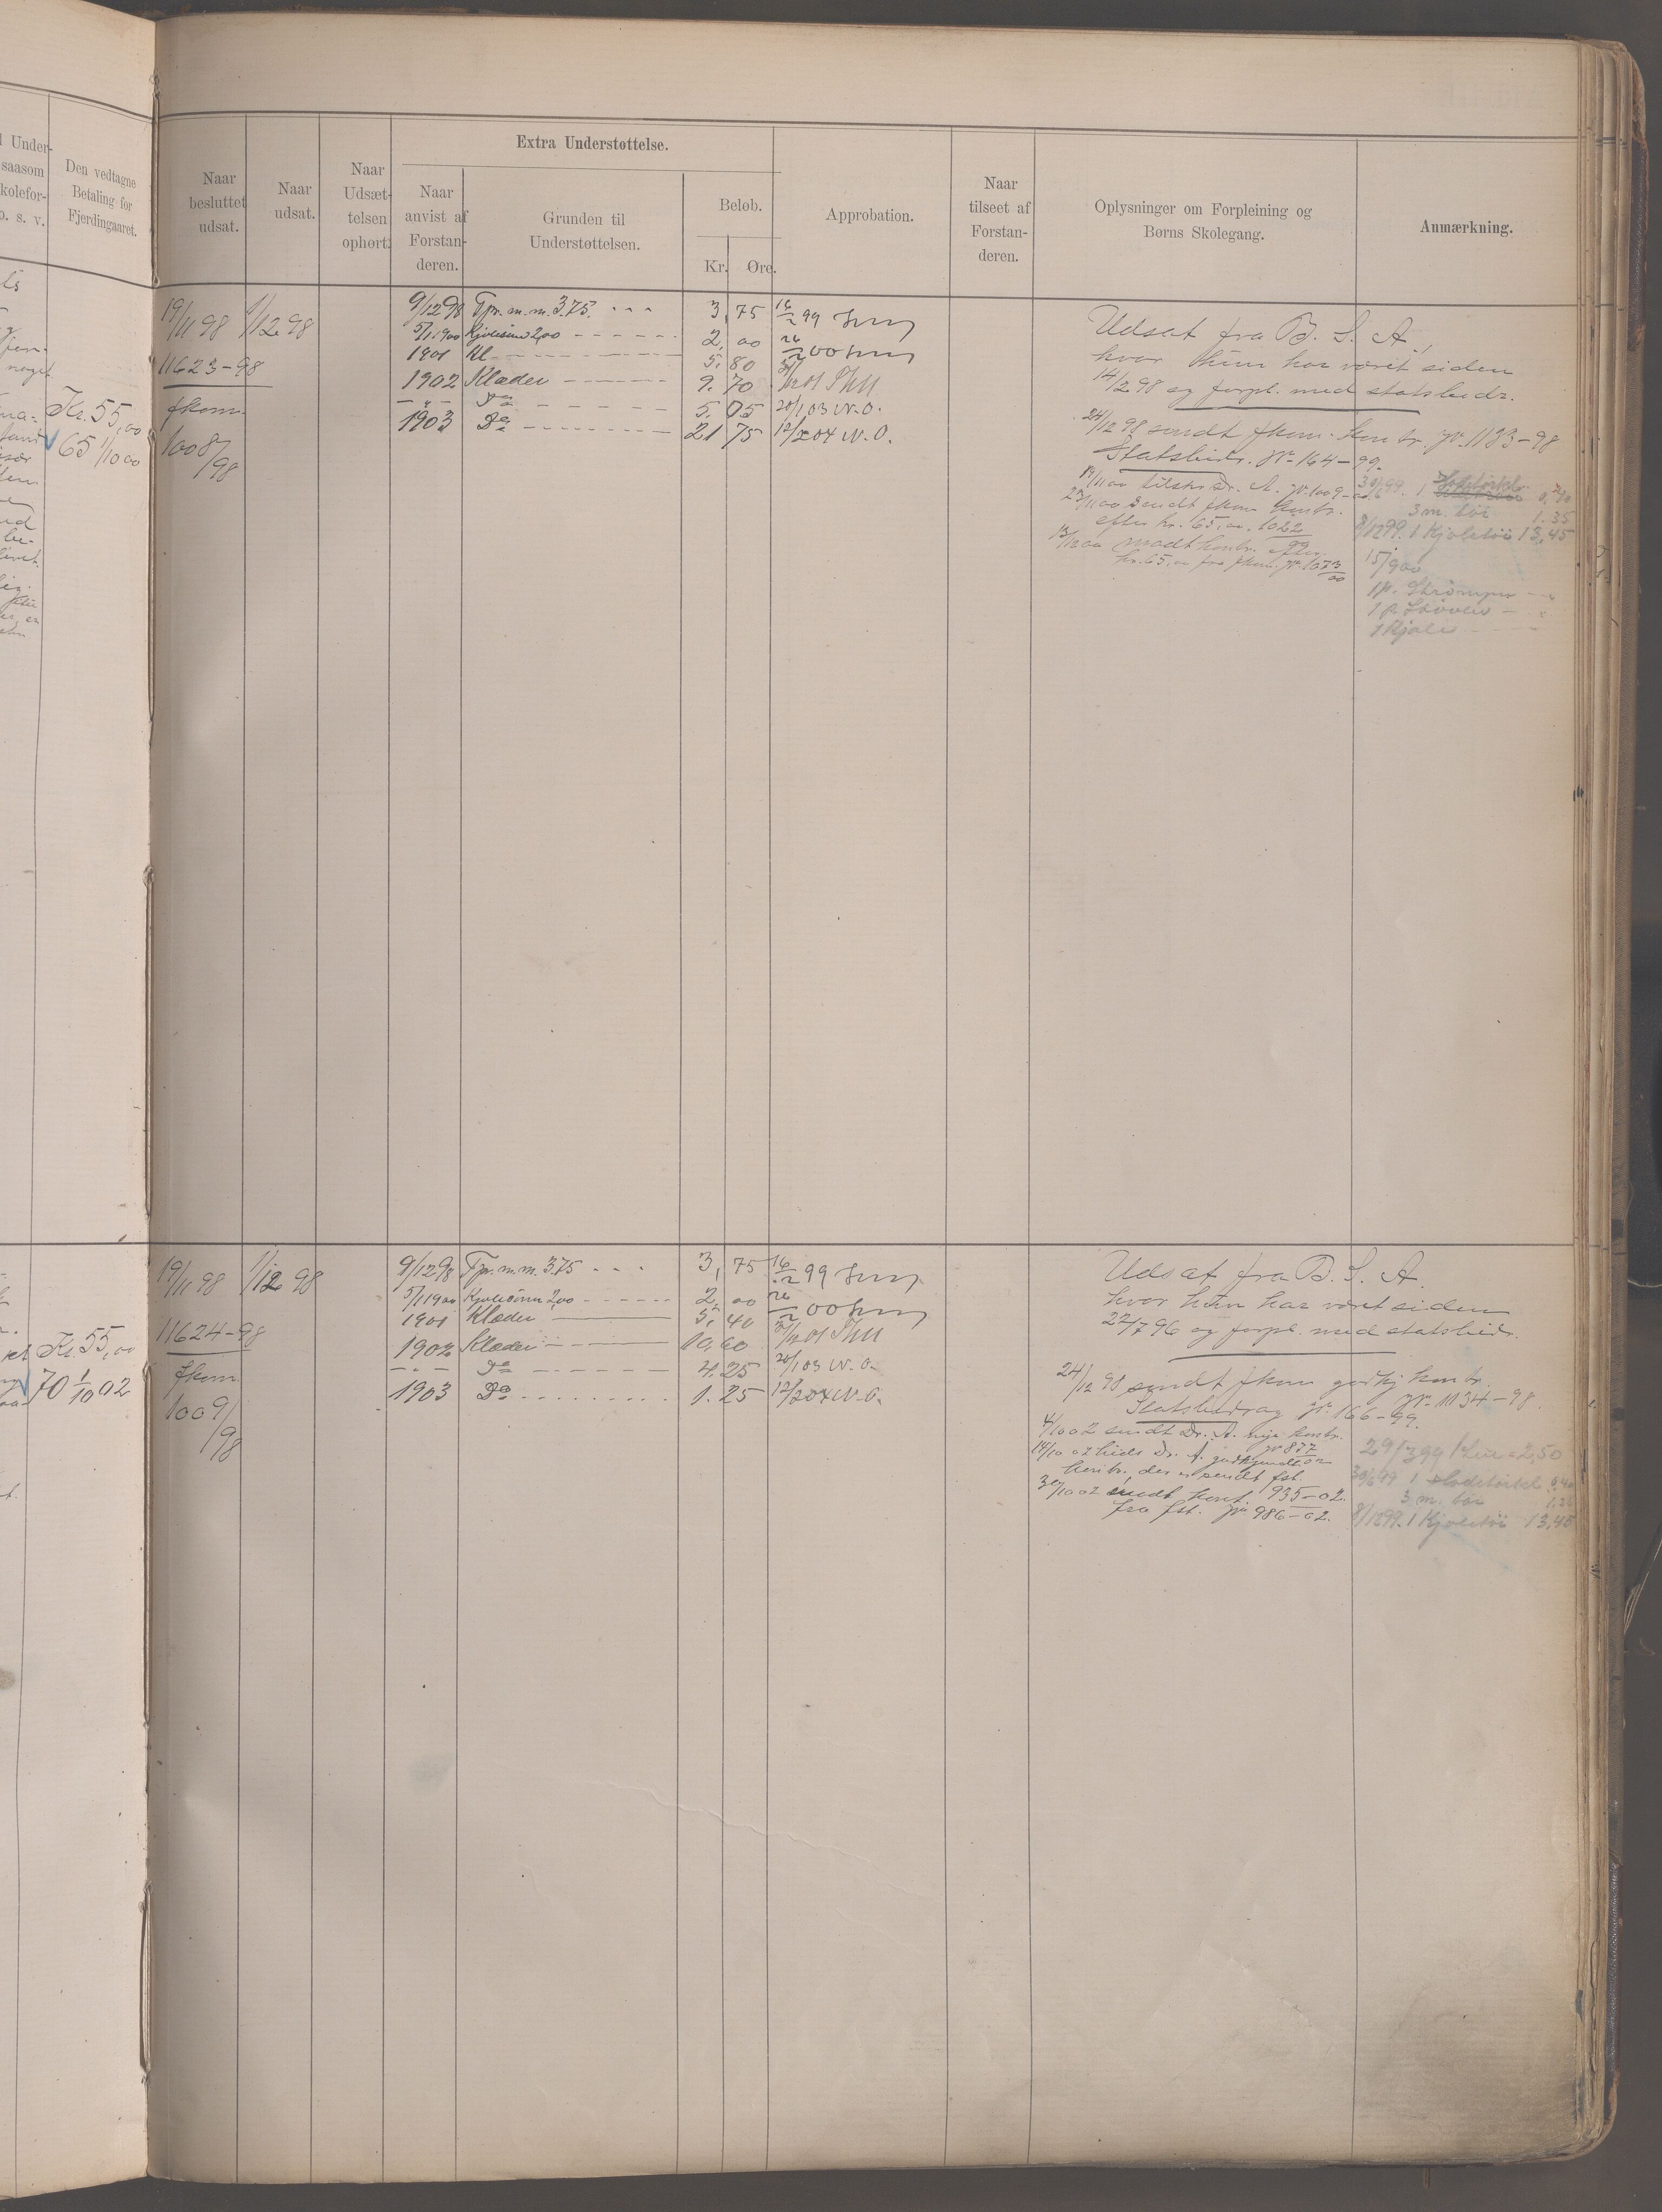 Under-
saasom
kolefor-
o. s. v.
Den vedtagne
Betaling for
Fjerdingaaret.
Naar
besluttet
udsat.
Naar
udsat.
Naar
Udsæt-
telsen
ophørt.
Extra Understøttelse.
Naar
anvist af
Forstan-
deren.
Grunden til
Understøttelsen.
Beløb.
Kr. Øre.
Approbation.
Naar
tilseet af
Forstan-
deren.
Oplysninger om Forpleining og
Børns Skolegang.
Anmærkning.
Kr. 55,00
65 1/10 00
19/11 98 1/12 98
11623-98
fkom.
1008/98
9/12 98 Tpr. m.m. 3.75. - - - 3,75 16/2 99
5/1 1900 2,00 - - - 2,00 26/2 00
1901 Kl - - - 5,80 /2 01
1902 Klæder - - - 9.70
- " - Do - - - 5,05 20/1 03 W.O.
1903 Do - - - 21 75 12/2 04 W.O.
Udsat fra B. S. A.,
hvor hun har været siden
14/2 98 og forpl. med statsbidr.
24/12 98 sendt fkom. kontr. Jr. 1133-98
Statsbidr. Jr. 164-99.
19/11 00 tilskr. Dr. A. Jr. 1009-00
27/11 00 Sendt fkom kontr.
efter kr. 65,00. 1022
13/12 00 modt kontr.
kr. 65,00 fra fkom. Jr. 1073/00
30/6 99. 1
3 m. tøi 1.35
8/12 99. 1 Kjoletøi 13,45
15/9 00
1 p. Strømper
1 p. Støvler
1 Kjole
Kr. 55,00
70 1/10 02
19/11 98 1/12 98
11624-98
fkom.
1009/98
9/12 98 Tpr. m.m. 3.75 - - - 3,75 16/2 99
5/1 1900 2,00 - - - 2,00 26/2 00
1901 Klæder 5,40 /2 01
1902 Klæder 10,60
- " - Do - - - 4.25 20/1 03 W.O.
1903 Do - - - 1.25 12/2 04 W.O.
Udsat fra B. S. A.
hvor hun har været siden
22/7 96 og forpl. med statsbidr.
24/12 98 sendt fkom godkj. kontr.
Jr. 1134-98.
Statsbidrag Jr. 166-99.
4/10 02 sendt Dr. A. nye kontr.
Jr 877/02
14/10 02 Dr. A. godkjendt
kontr., der er sendt fst.
935-02.
30/10 02 sendt kont.
fra fst. Jr 986-02.
29/3 99 2,50
30/6 99 1 Hodetørkl 0,40
3 m. tøi
8/12 99. 1 Kjoletøi 13,45